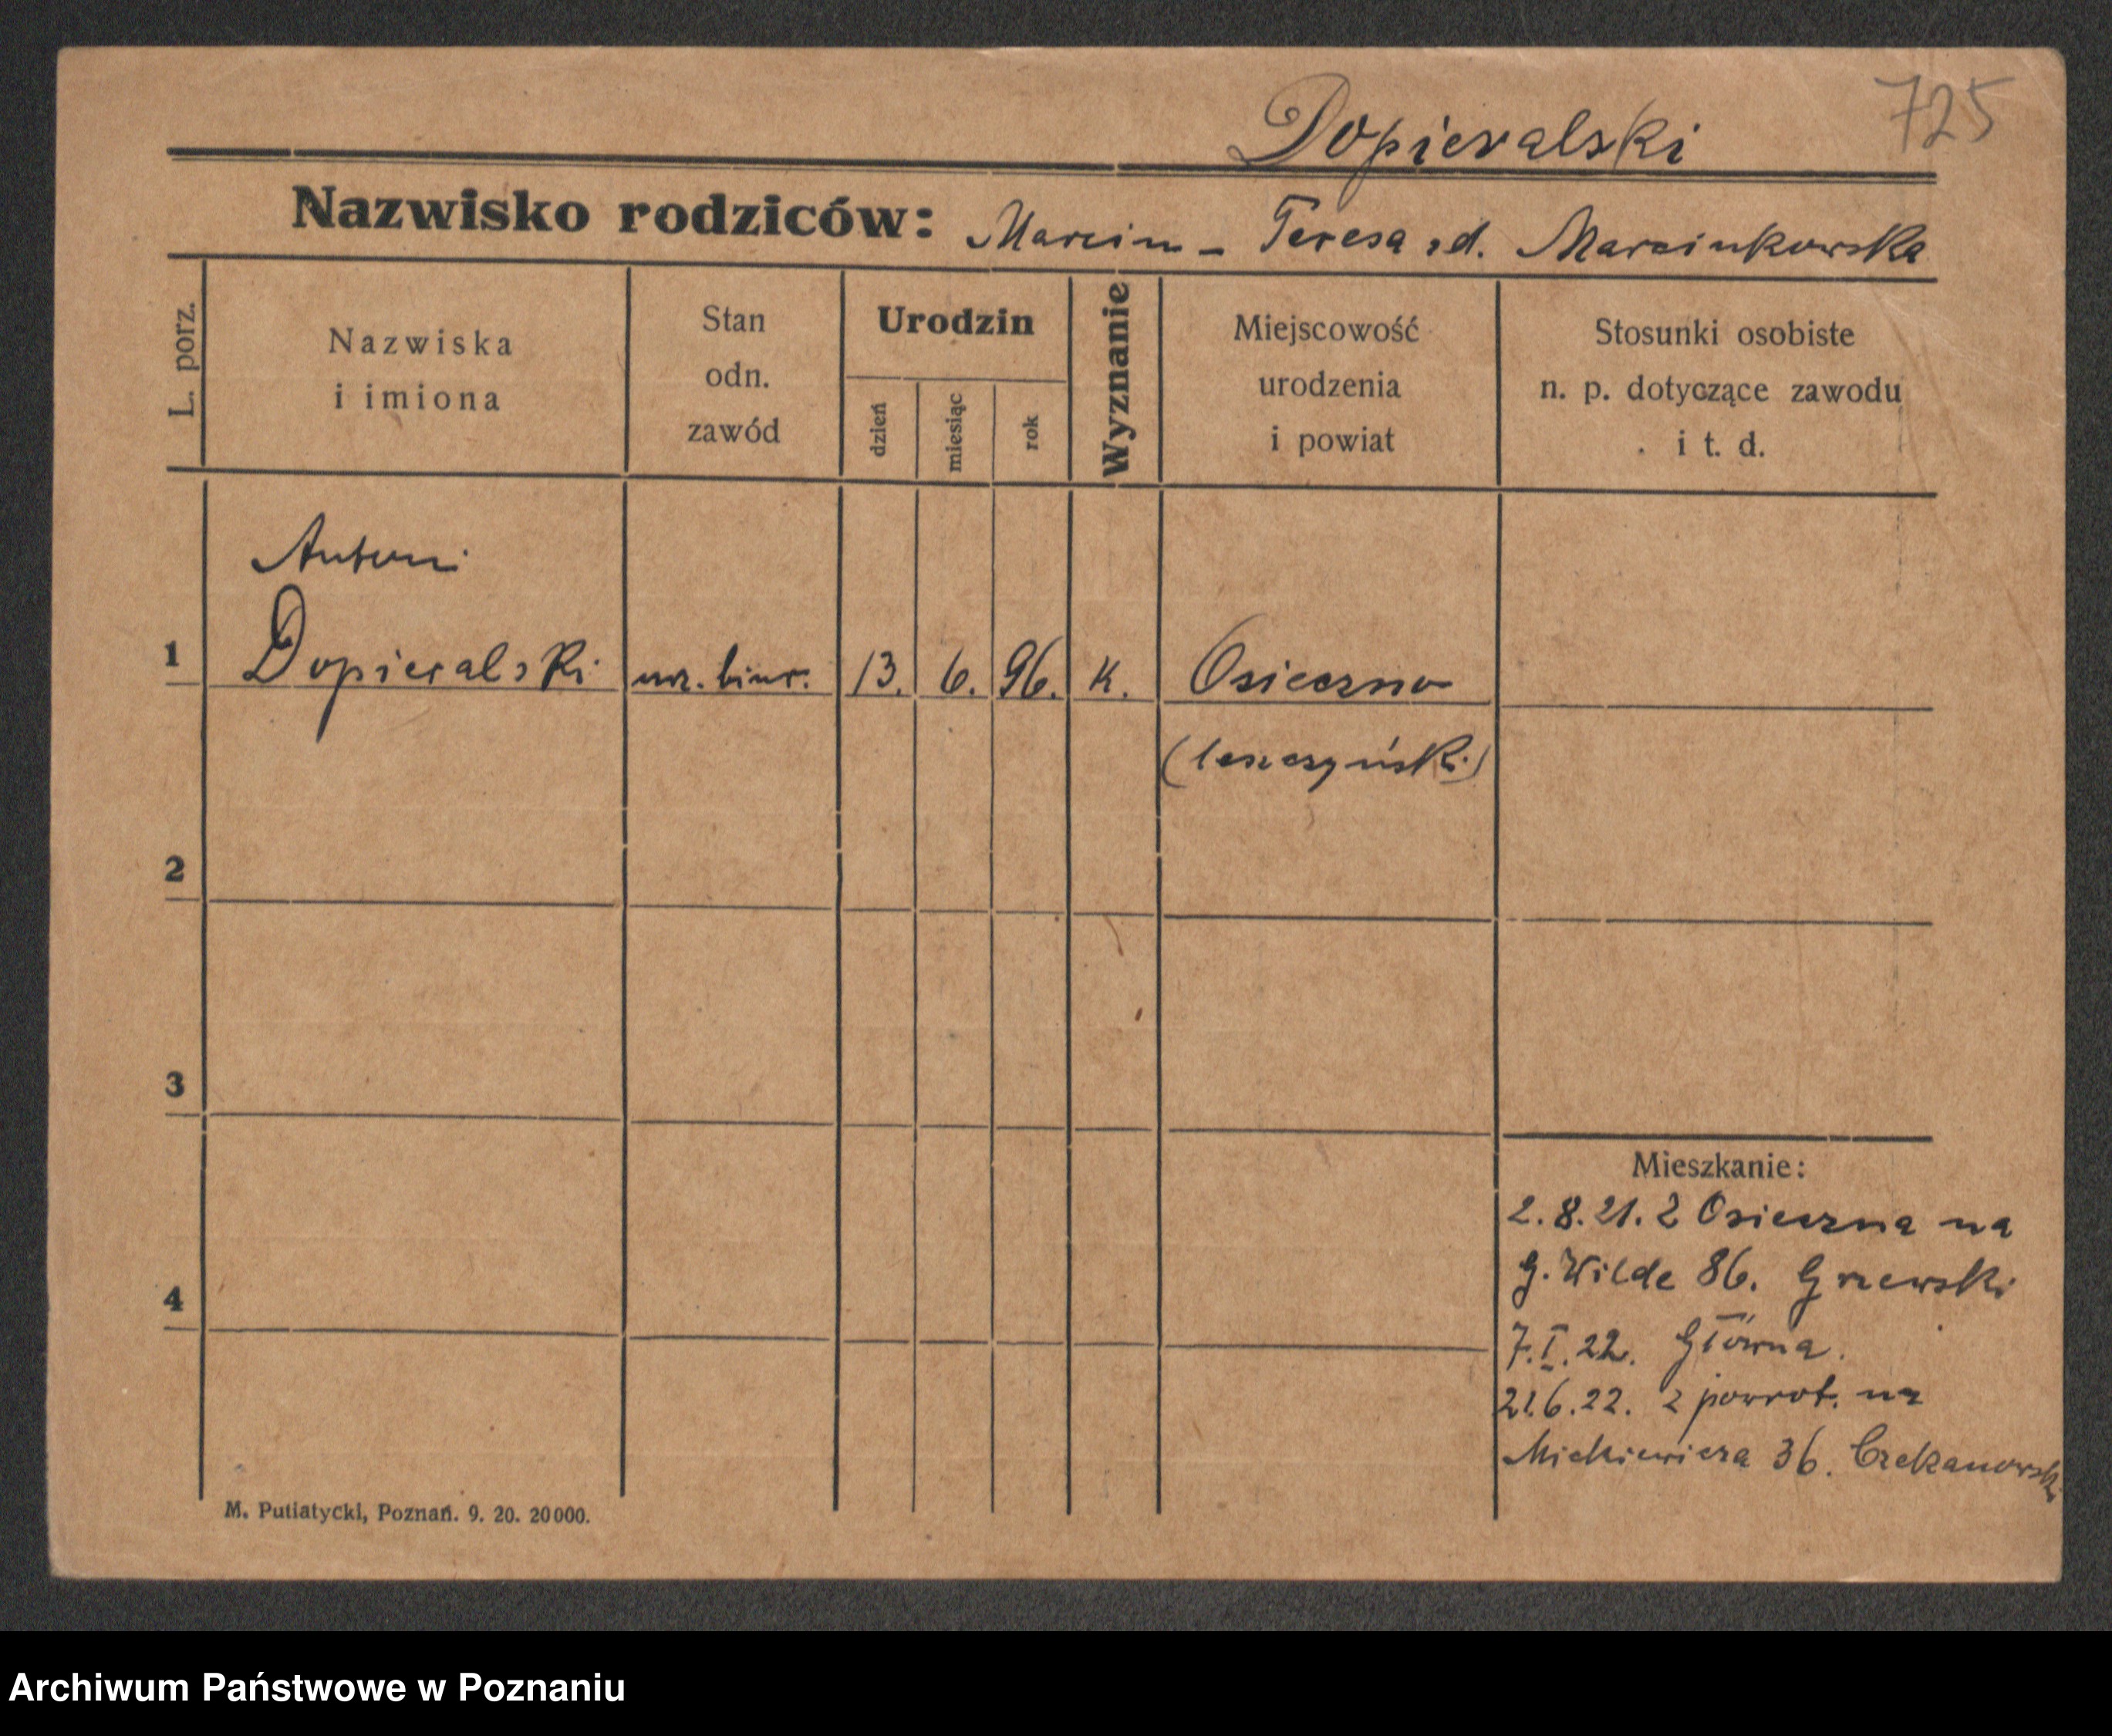 725
Dopieralski
Nazwisko rodziców: Marcin – Teresa zd. Marcinkowska
L. porz.
Nazwiska
i imiona
Stan
odn.
zawód
Urodzin
dzień
miesiąc
rok
Wyznanie
Miejscowość
urodzenia
i powiat
Stosunki osobiste
n. p. dotyczące zawodu
i t. d.
Antoni
1 Dopieralski urz. biur. 13. 6. 96. k. Osieczno
(leszczyński)
2
3
4
Mieszkanie:
2.8.21. z Osieczna na
G. Wilde 86. Grzewski
7.I.22. Główna.
21.6.22. z powrot. na
Mickiewicza 36. Czekanowski
M. Putiatycki, Poznań. 9. 20. 20000.
Archiwum Państwowe w Poznaniu